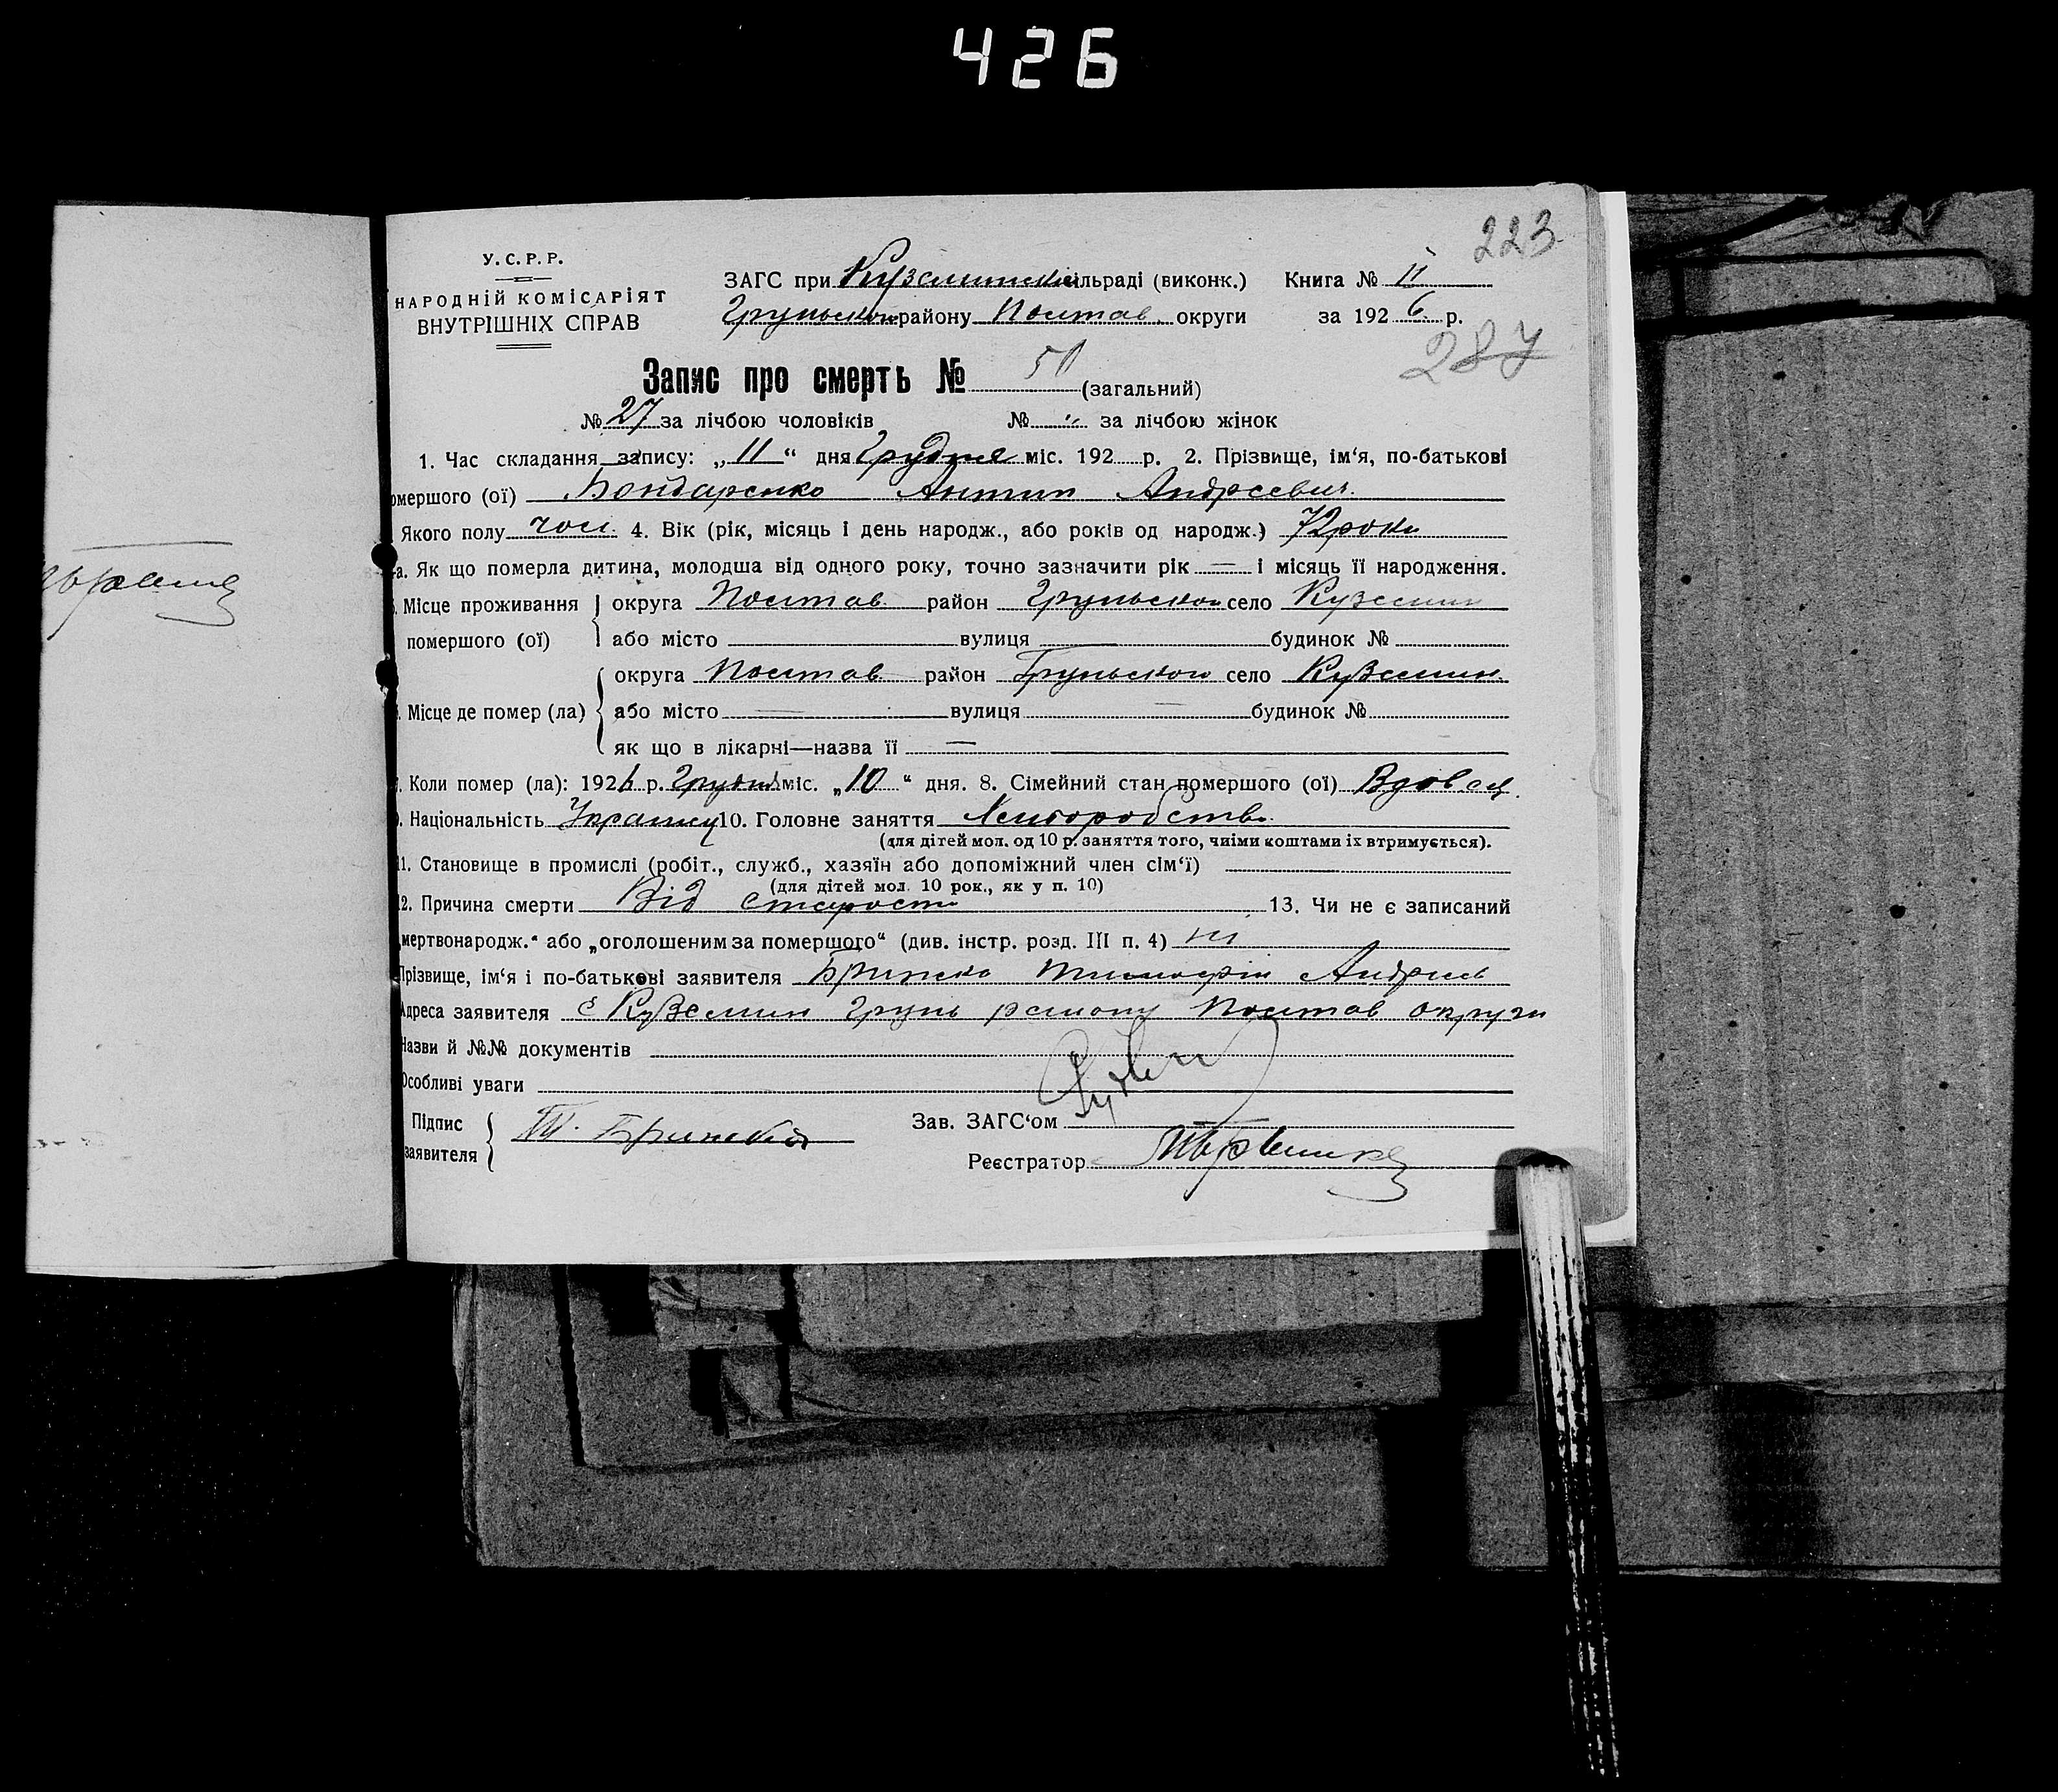 426
223
У. С. Р. Р.
НАРОДНІЙ КОМІСАРІЯТ
ВНУТРІШНІХ СПРАВ
ЗАГС при Куземинскі ільраді (виконк.) Книга № II
Груньском району Полтав. округи за 1926 р.
287
Запис про смерть № 50 (загальний)
№ 27 за лічбою чоловіків № " за лічбою жінок
1. Час складання запису: „11“ дня Грудня міс. 192 р. 2. Прізвище, ім‘я, по-батькові
омершого (ої) Бондаренко Антип Андреевич.
Якого полу чол. 4. Вік (рік, місяць і день народж., або років од народж.) 72 роки
-а. Як що померла дитина, молодша від одного року, точно зазначити рік — і місяць її народження.
Місце проживання округа Полтав. район Груньском село Куземин
помершого (ої) або місто вулиця будинок №
округа Полтав район Груньском село Куземин.
Місце де помер (ла) або місто — вулиця — будинок №
як що в лікарні—назва її —
Коли помер (ла): 1926 р. Грудня міс. „10“ дня. 8. Сімейний стан помершого (ої) Вдовец.
Національність Украинец 10. Головне заняття Хлиборобство
(для дітей мол. од 10 р. заняття того, чиїми коштами їх втримується).
11. Становище в промислі (робіт., служб., хазяїн або допоміжний член сім‘ї)
(для дітей мол. 10 рок., як у п. 10)
12. Причина смерти Від старости 13. Чи не є записаний
мертвонародж.“ або „оголошеним за помершого“ (див. інстр. розд. III п. 4) ні
Прізвище, ім‘я і по-батькові заявителя Тимофій Андреев
Адреса заявителя с Куземин Грунь району Полтав округи
Назви й №№ документів
Особливі уваги
Підпис
заявителя Т.
Зав. ЗАГС‘ом
Реєстратор